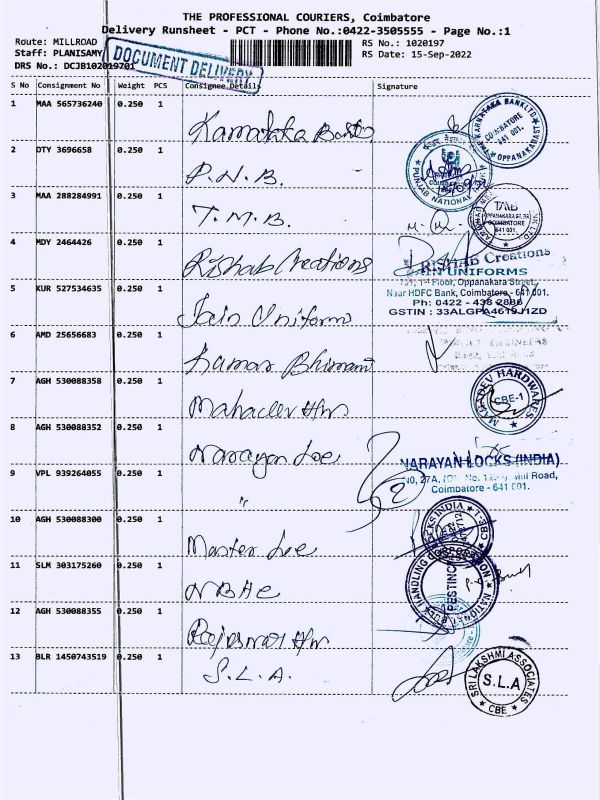 THE PROFESSIONAL COURIERS, Coimbatore
Delivery Runsheet - PCT - Phone No.:0422-3505555 - Page No.:1
Route: MILLROAD
RS No.: 1020197
Staff: PLANISAMY
RS Date: 15-Sep-2022
DRS No.: DCJB102019701
DOCUMENT DELIVERY
S No Consignment No Weight PCS Consignee Details Signature
1 MAA 565736240 0.250 1 Karnataka Bank
KARNATAKA BANK LTD COIMBATORE 641 001. OPPANAKARA ST
2 DTY 3696658 0.250 1 P.N.B.
PUNJAB NATIONAL
3 MAA 288284991 0.250 1 T.M.B.
TMB OPPANAKARA ST, COIMBATORE 641 001.
4 MDY 2464426 0.250 1 Rishab Creations
RISHAB Creations
5 KUR 527534635 0.250 1 Jain Uniform
JAIN UNIFORMS
1st Floor, Oppanakara Street,
Near HDFC Bank, Coimbatore - 641 001.
Ph: 0422 - 438 2886
GSTIN : 33ALGPA4619J1ZD
6 AMD 25656683 0.250 1 Kumar
7 AGH 530088358 0.250 1 Mahadev H/w
MAHADEV HARDWARES CBE-1
8 AGH 530088352 0.250 1 Narayan Loc
NARAYAN LOCKS (INDIA)
NO, 27A, Mill Road,
Coimbatore - 641 001.
9 VPL 939264055 0.250 1 "
10 AGH 530088300 0.250 1 Master Loc
LOCKS INDIA CBE-1
11 SLM 303175260 0.250 1
NATIONAL BULK HANDLING CORPORATION
12 AGH 530088355 0.250 1 H/w
13 BLR 1450743519 0.250 1 S.L.A.
SRI LAKSHMI ASSOCIATES S.L.A CBE